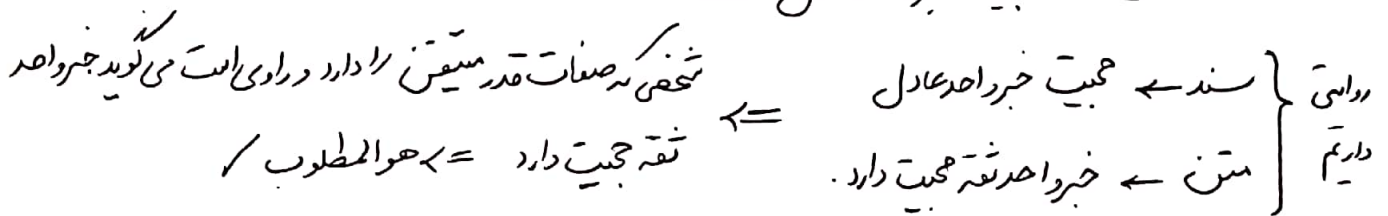 روایتی داریم { سند ← حجیت خبر واحد عادل
متن ← خبر واحد ثقه حجیت دارد.
=> شخصی که صفات قدر متیقن را دارد و راوی است می‌گوید خبر واحد
ثقه حجیت دارد => هو المطلوب ✓